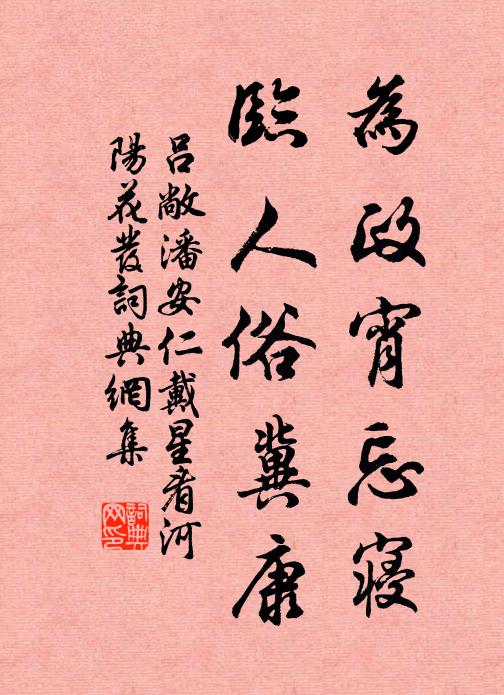 為政宵忘寢
臨人俗冀康
呂敞潘安仁戴星看河
陽花發詞典網集
詞典网印